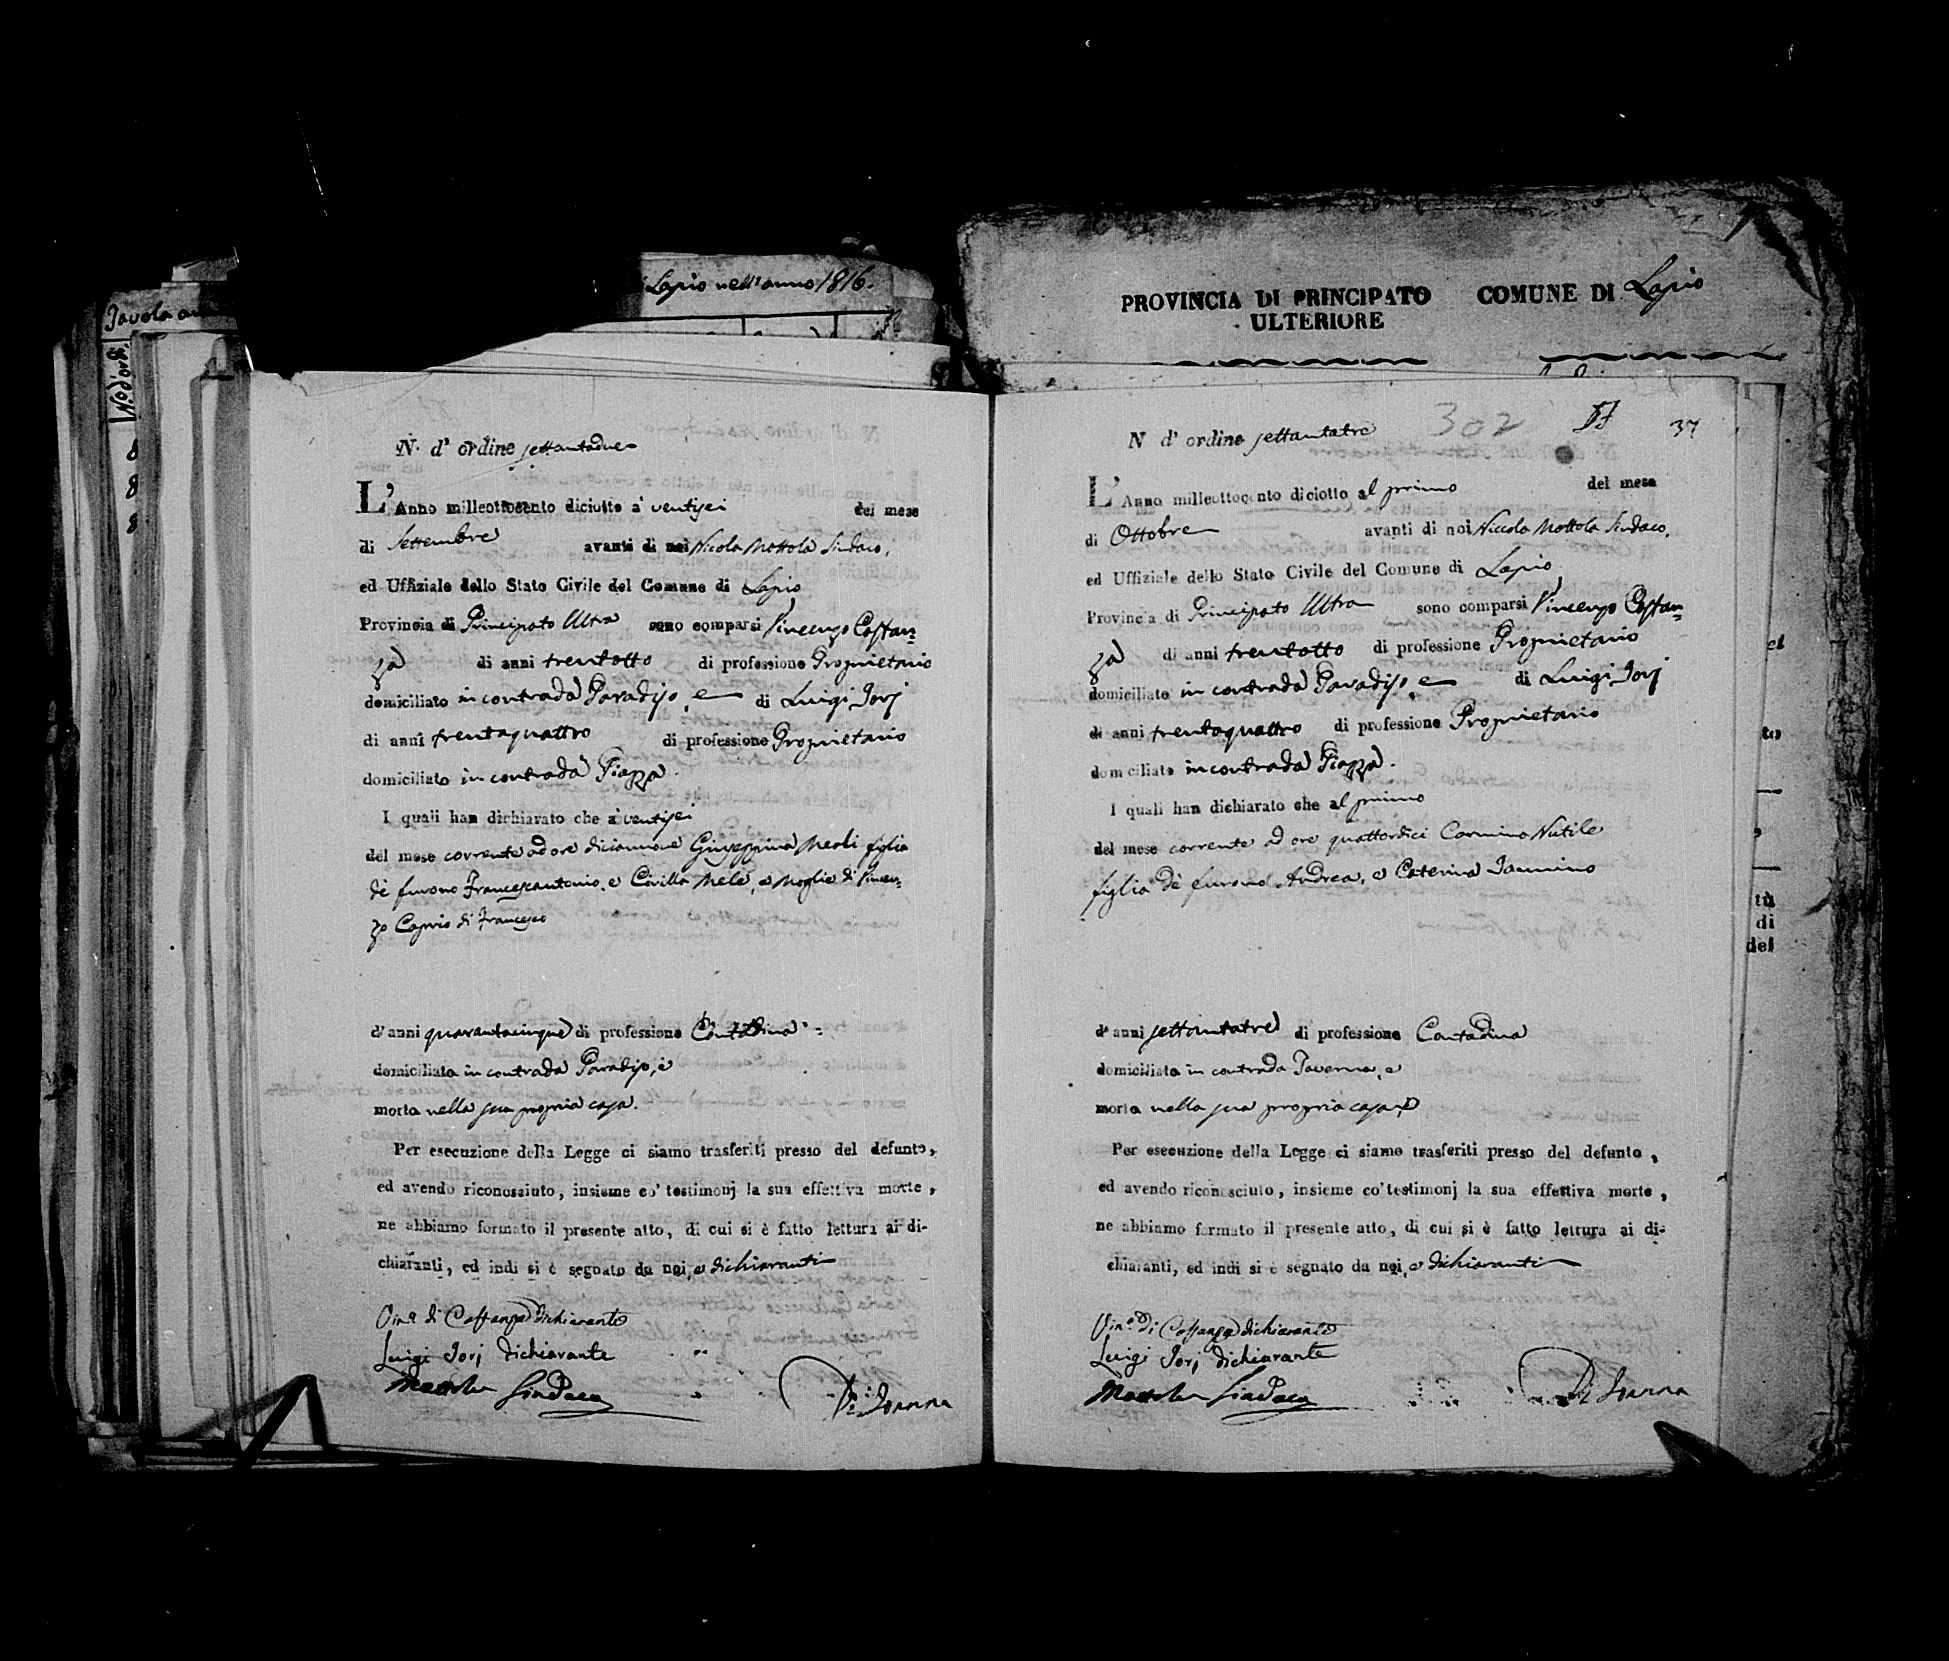 Lapio nell'anno 1816.
Tavola an
N.º d'ord.
8
8
8
PROVINCIA DI PRINCIPATO
ULTERIORE
COMUNE DI Lapio
N. d' ordine settantadue
L'Anno milleottocento diciotto a' ventisei del mese
di Settembre avanti di noi Nicola Mottola Sindaco,
ed Uffiziale dello Stato Civile del Comune di Lapio
Provincia di Principato Ultra sono comparsi Vincenzo Costan=
za di anni trentotto di professione Proprietario
domiciliato in contrada Paradiso, e di Luigi Iorj
di anni trentaquattro di professione Proprietario
domiciliato in contrada Piazza.
I quali han dichiarato che a' ventisei
del mese corrente ad ore diciannove Giuseppina Meoli figlia
de' furono Francescantonio, e Civilla Mele, e moglie di Vincen=
zo Caprio di Francesco
d'anni quarantacinque di professione Contadina
domiciliata in contrada Paradiso, è
morta nella sua propria casa.
Per esecuzione della Legge ci siamo trasferiti presso del defunto,
ed avendo riconosciuto, insieme co' testimonj la sua effettiva morte,
ne abbiamo formato il presente atto, di cui si è fatto lettura ai di-
chiaranti, ed indi si è segnato da noi, e dichiaranti
Vin.º di Costanza dichiarante
Luigi Iorj dichiarante
Mottola Sindaco
Di Ioanna
302
37
N d' ordine settantatre
L'Anno milleottocento diciotto al primo del mese
di Ottobre avanti di noi Niccola Mottola Sindaco,
ed Uffiziale dello Stato Civile del Comune di Lapio
Provincia di Principato Ultra sono comparsi Vincenzo Costan=
za di anni trentotto di professione Proprietario
domiciliato in contrada Paradiso, e di Luigi Iorj
di anni trentaquattro di professione Proprietario
domiciliato in contrada Piazza.
I quali han dichiarato che al primo
del mese corrente ad ore quattordici Carmina Nutile
figlia de' furono Andrea, e Caterina Iannino
d'anni settantatre di professione Contadina
domiciliata in contrada Taverna, è
morta nella sua propria casa
Per esecuzione della Legge ci siamo trasferiti presso del defunto,
ed avendo riconosciuto, insieme co' testimonj la sua effettiva morte,
ne abbiamo formato il presente atto, di cui si è fatto lettura ai di-
chiaranti, ed indi si è segnato da noi, e dichiaranti
Vin.º di Costanza dichiarante
Luigi Iorj dichiarante
Mottola Sindaco
Di Ioanna
el
to
tù
di
del